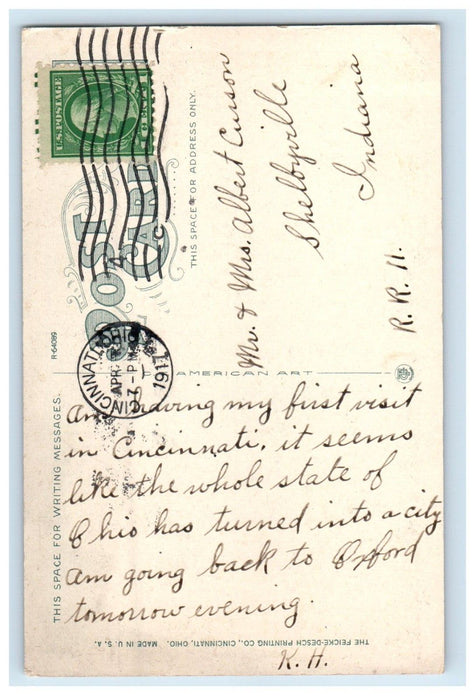 U.S. POSTAGE
1 CENT 1
POST
CARD
CINCINNATI, OHIO
APR
7-PM
1917
THIS SPACE FOR ADDRESS ONLY.
Mr. & Mrs. Albert Curson
Shelbyville
Indiana
R. R. 11.
R-64089
AMERICAN ART
THIS SPACE FOR WRITING MESSAGES.
Am having my first visit
in Cincinnati, it seems
like the whole state of
Ohio has turned into a city
am going back to Oxford
tomorrow evening.
K. H.
THE FEICKE-DESCH PRINTING CO., CINCINNATI, OHIO. MADE IN U. S. A.